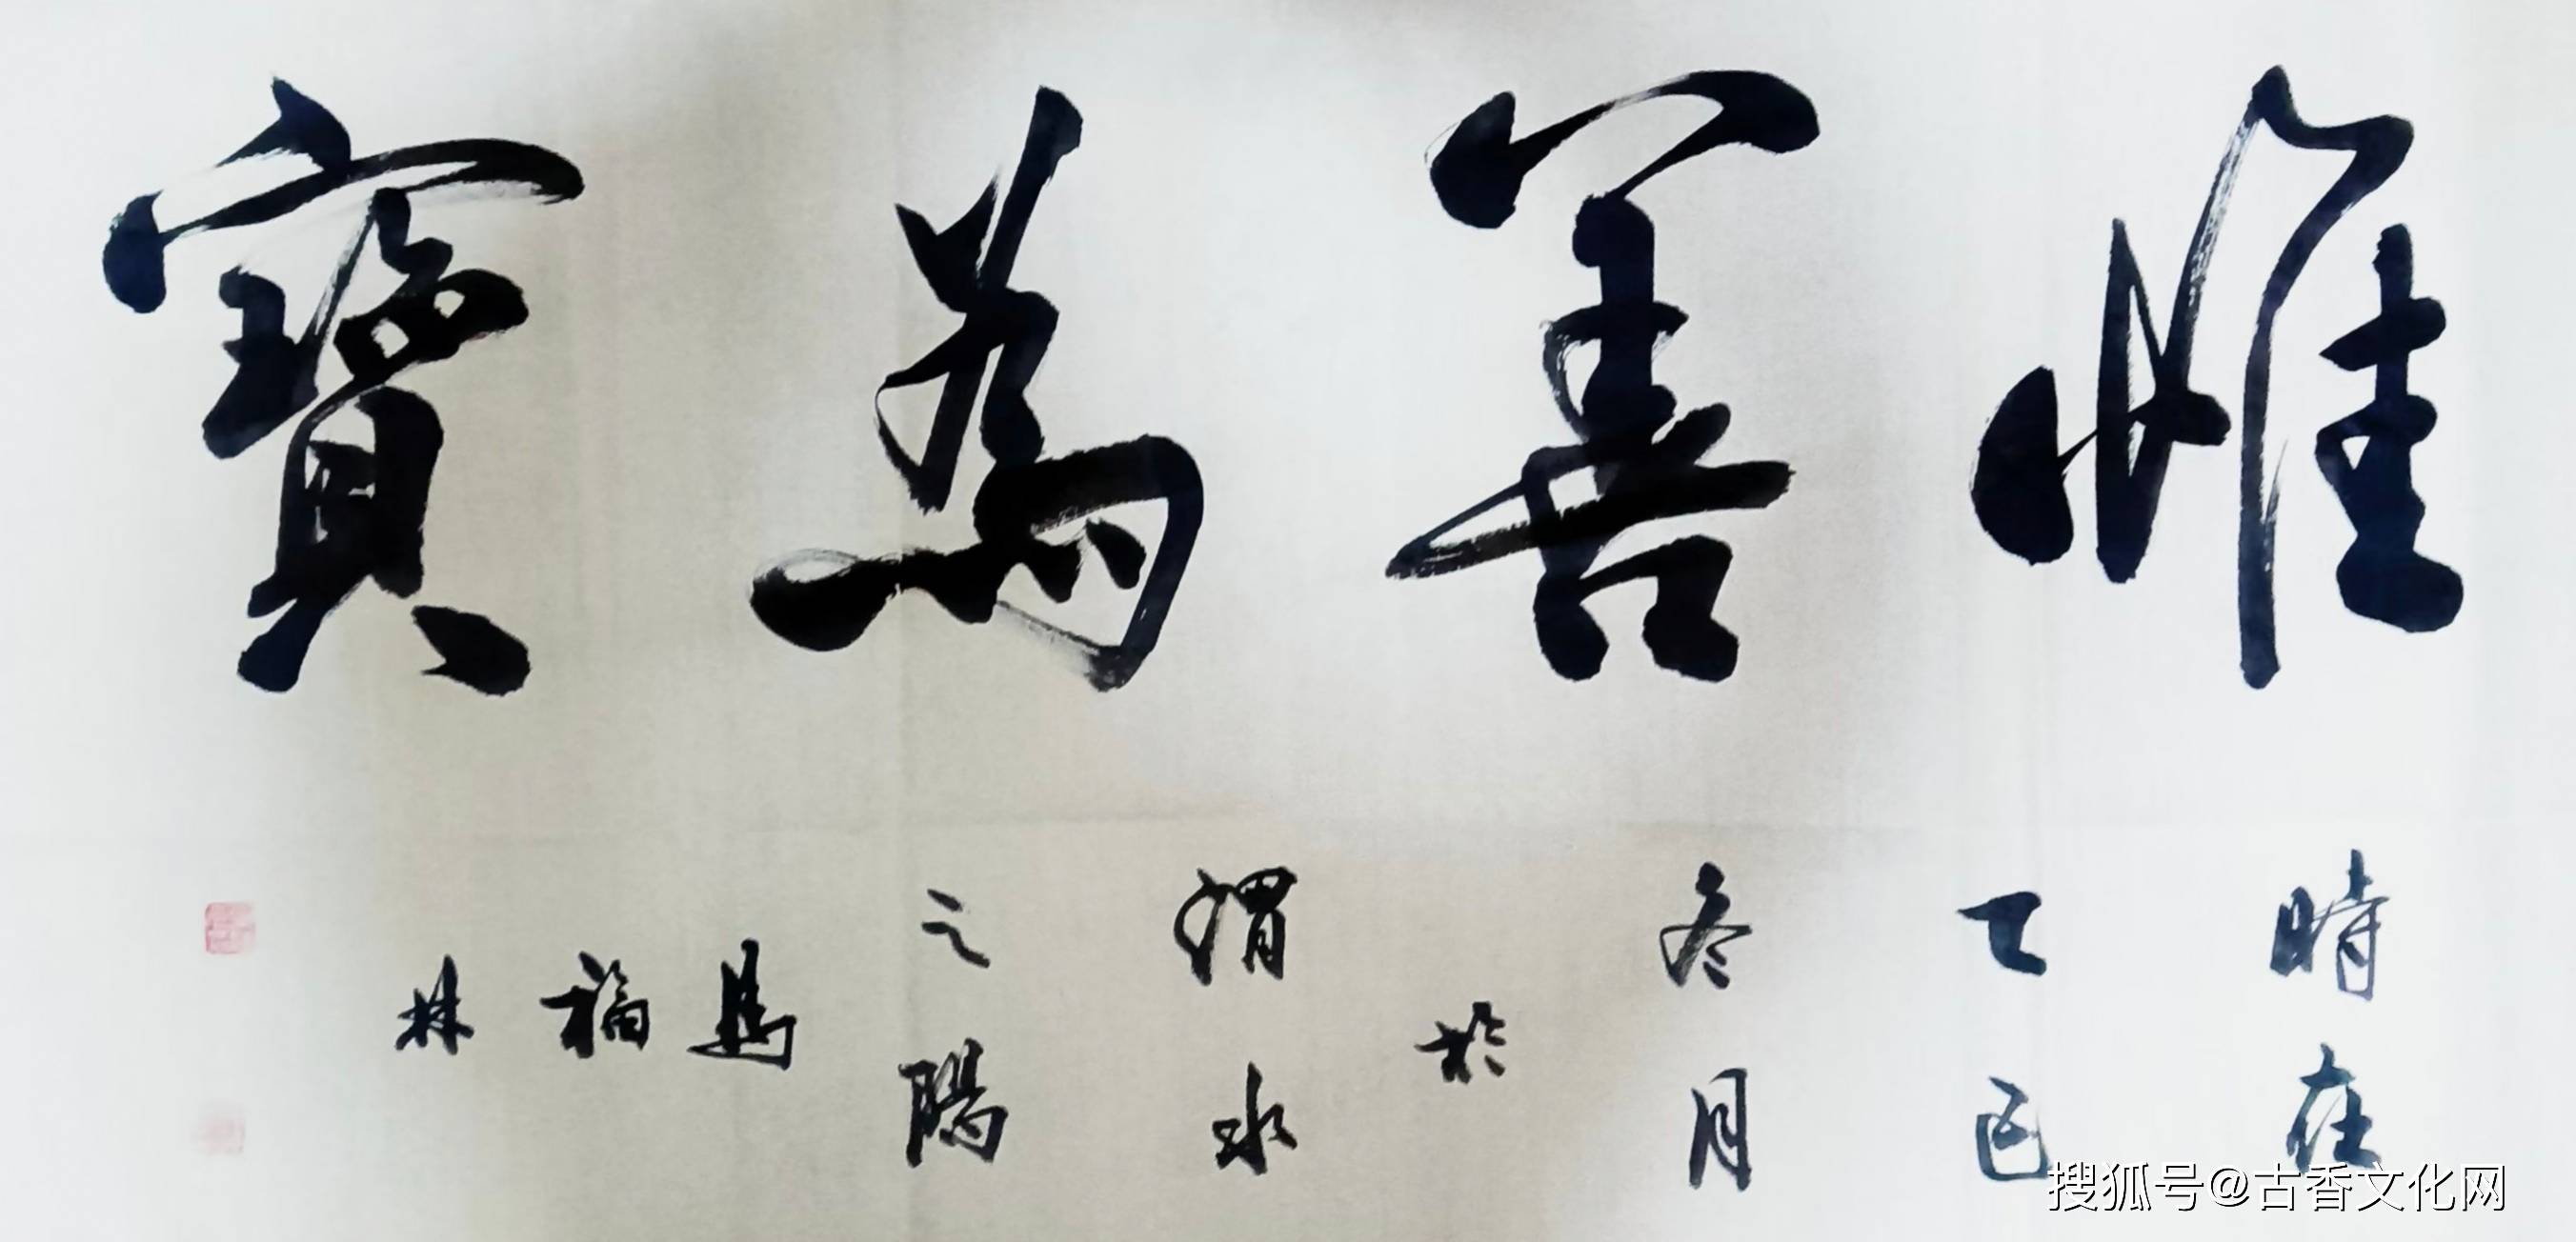 惟善為寶
時在
乙巳
冬月
於
渭水
之陽
馬福林
搜狐号@古香文化网